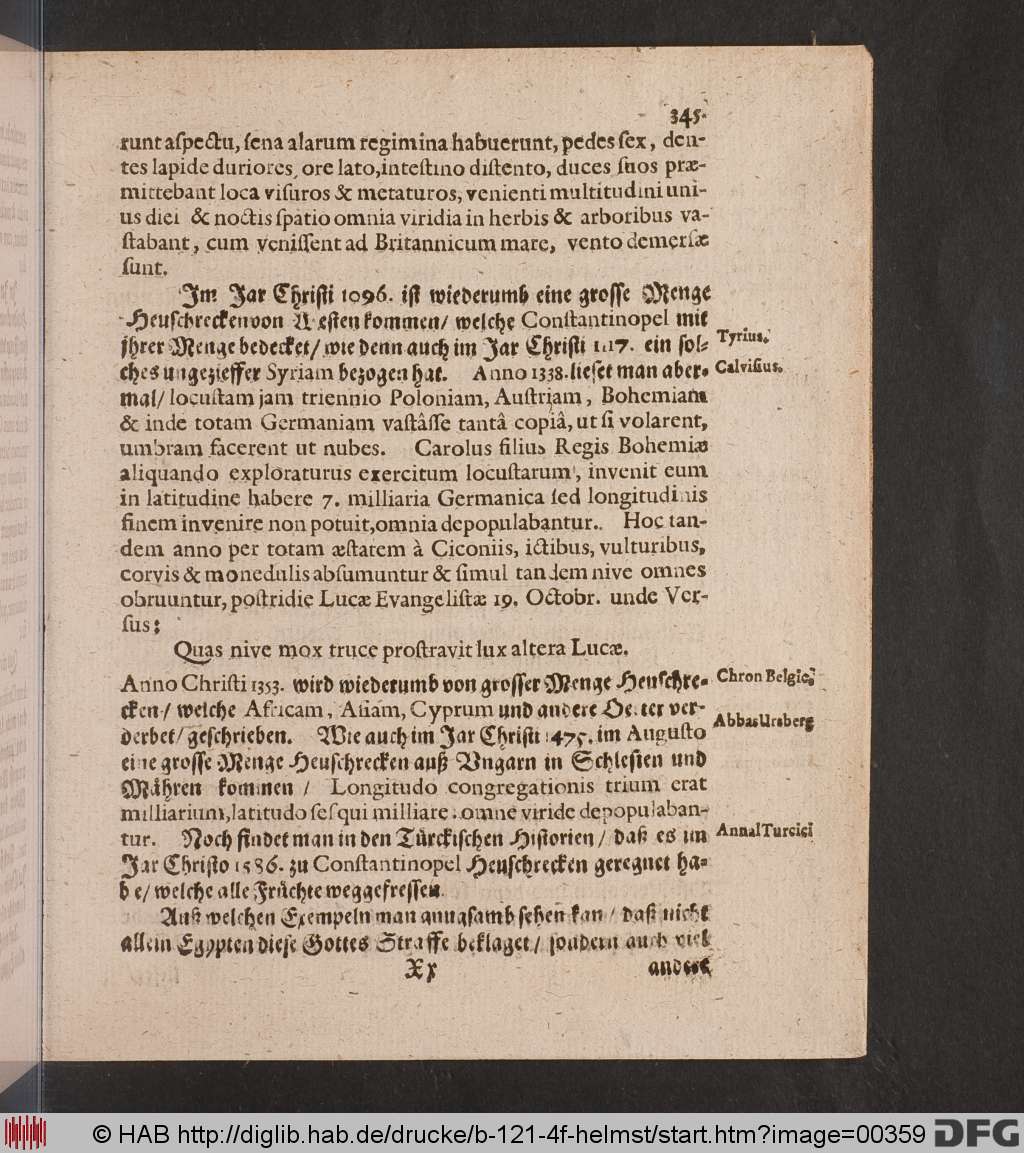 345.
runt aſpectu, ſena alarum regimina habuerunt, pedes ſex, den-
tes lapide duriores, ore lato, inteſtino diſtento, duces ſuos præ-
mittebant loca viſuros & metaturos, venienti multitudini uni-
us diei & noctis ſpatio omnia viridia in herbis & arboribus va-
ſtabant, cum veniſſent ad Britannicum mare, vento demerſæ
ſunt.
Im Jar Chriſti 1096. iſt wiederumb eine groſſe Menge
Heuſchrecken von Weſten kommen/ welche Conſtantinopel mit
jhrer Menge bedecket/ wie denn auch im Jar Chriſti 1117. ein ſol-
Tyrius.
ches ungezieffer Syriam bezogen hat. Anno 1338. lieſet man aber-
Calviſius.
mal/ locuſtam jam triennio Poloniam, Auſtriam, Bohemiam
& inde totam Germaniam vaſtâſſe tantâ copiâ, ut ſi volarent,
umbram facerent ut nubes. Carolus filius Regis Bohemiæ
aliquando exploraturus exercitum locuſtarum, invenit eum
in latitudine habere 7. milliaria Germanica ſed longitudinis
finem invenire non potuit, omnia depopulabantur. Hoc tan-
dem anno per totam æſtatem à Ciconiis, ictibus, vulturibus,
corvis & monedulis abſumuntur & ſimul tandem nive omnes
obruuntur, poſtridie Lucæ Evangeliſtæ 19. Octobr. unde Ver-
ſus:
Quas nive mox truce proſtravit lux altera Lucæ.
Anno Chriſti 1353. wird wiederumb von groſſer Menge Heuſchre-
Chron Belgic.
cken/ welche Africam, Aſiam, Cyprum und andere Oerter ver-
Abbas Ursberg
derbet/ geſchrieben. Wie auch im Jar Chriſti 1475. im Auguſto
eine groſſe Menge Heuſchrecken auß Vngarn in Schleſien und
Mähren kommen/ Longitudo congregationis trium erat
milliarium, latitudo ſeſqui milliare: omne viride depopulaban-
tur. Noch findet man in den Türckiſchen Hiſtorien/ daß es im
Annal Turcici
Jar Chriſto 1586. zu Conſtantinopel Heuſchrecken geregnet ha-
be/ welche alle Früchte weggefreſſen.
Auß welchen Exempeln man gnugſamb ſehen kan/ daß nicht
allein Egypten dieſe Gottes Straffe beklaget/ ſondern auch viel
Xx
andere
© HAB http://diglib.hab.de/drucke/b-121-4f-helmst/start.htm?image=00359
DFG